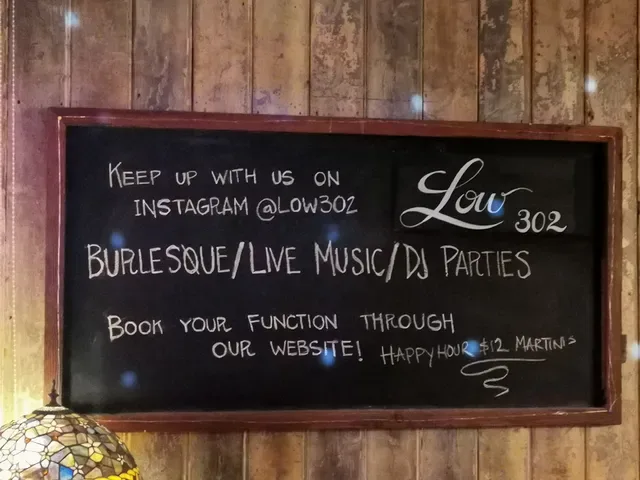 KEEP UP WITH US ON
INSTAGRAM @LOW302
Low
302
BURLESQUE/LIVE MUSIC/DJ PARTIES
BOOK YOUR FUNCTION THROUGH
OUR WEBSITE!
HAPPY HOUR $12 MARTINIS